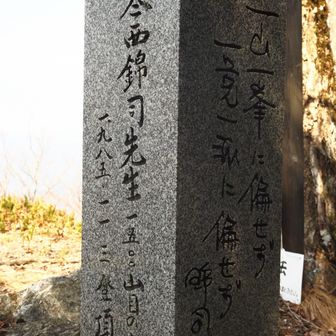 一山一峯に偏せず
一党一派に偏せず
錦司
今西錦司先生 一五〇〇山目の
一九八五 一一 三 登頂